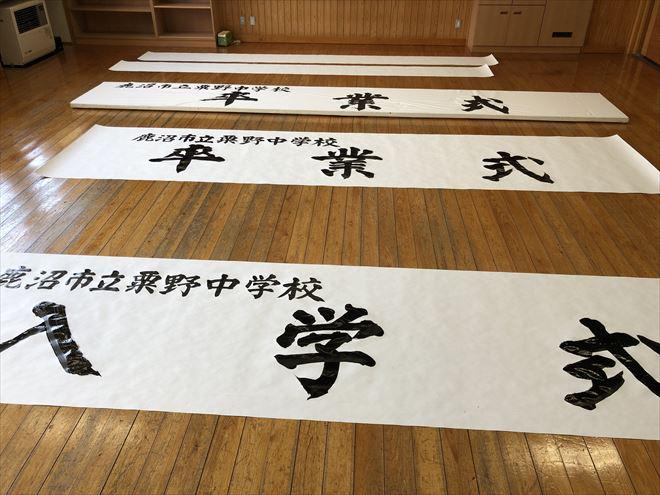 鹿沼市立粟野中学校
卒業式
鹿沼市立粟野中学校
卒業式
鹿沼市立粟野中学校
入学式